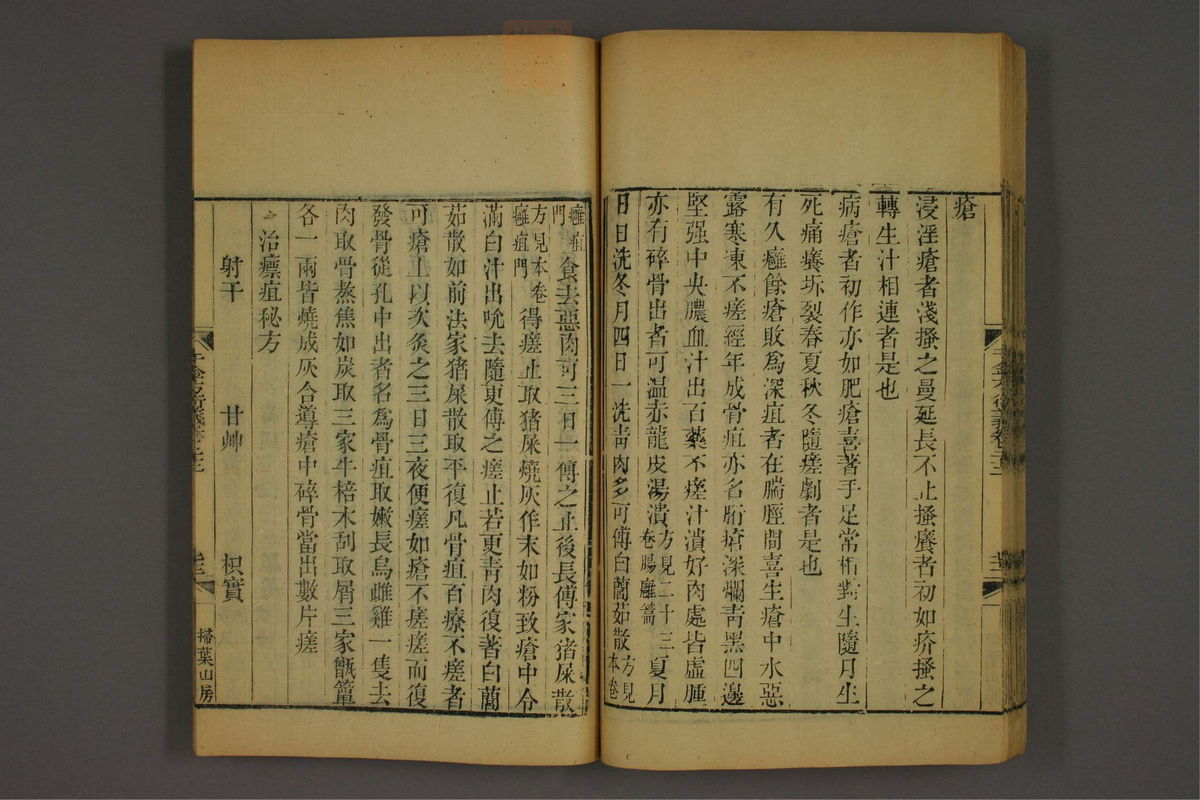 瘡
浸淫瘡者淺搔之曼延長不止搔癢者初如疥搔之
轉生汁相連者是也
病瘡者初作亦如肥瘡喜著手足常相對生隨月生
死痛癢坼裂春夏秋冬隨瘥劇者是也
有久癰餘瘡敗為深疽者在腨脛間喜生瘡中水惡
露寒凍不瘥經年成骨疽亦名胻瘡深爛青黑四邊
堅强中央膿血汁出百藥不瘥汁潰好肉處皆虛腫
亦有碎骨出者可温赤龍皮湯漬方見二十三卷腸癰篇夏月
日日洗冬月四日一洗青肉多可傅白䕡茹散方見本卷
癰疽門食去惡肉可三日一傅之止後長傅家猪屎散
方見本卷癰疽門得瘥止取猪屎燒灰作末如粉致瘡中令
滿白汁出吮去隨更傅之瘥止若更青肉復著白䕡
茹散如前法家猪屎散取平復凡骨疽百療不瘥者
可瘡上以次灸之三日三夜便瘥如瘡不瘥瘥而復
發骨從孔中出者名為骨疽取嫩長烏雌雞一隻去
肉取骨熬焦如炭取三家牛棓木刮取屑三家甑簞
各一兩皆燒成灰合導瘡中碎骨當出數片瘥
治瘭疽秘方
射干 甘艸 枳實
掃葉山房